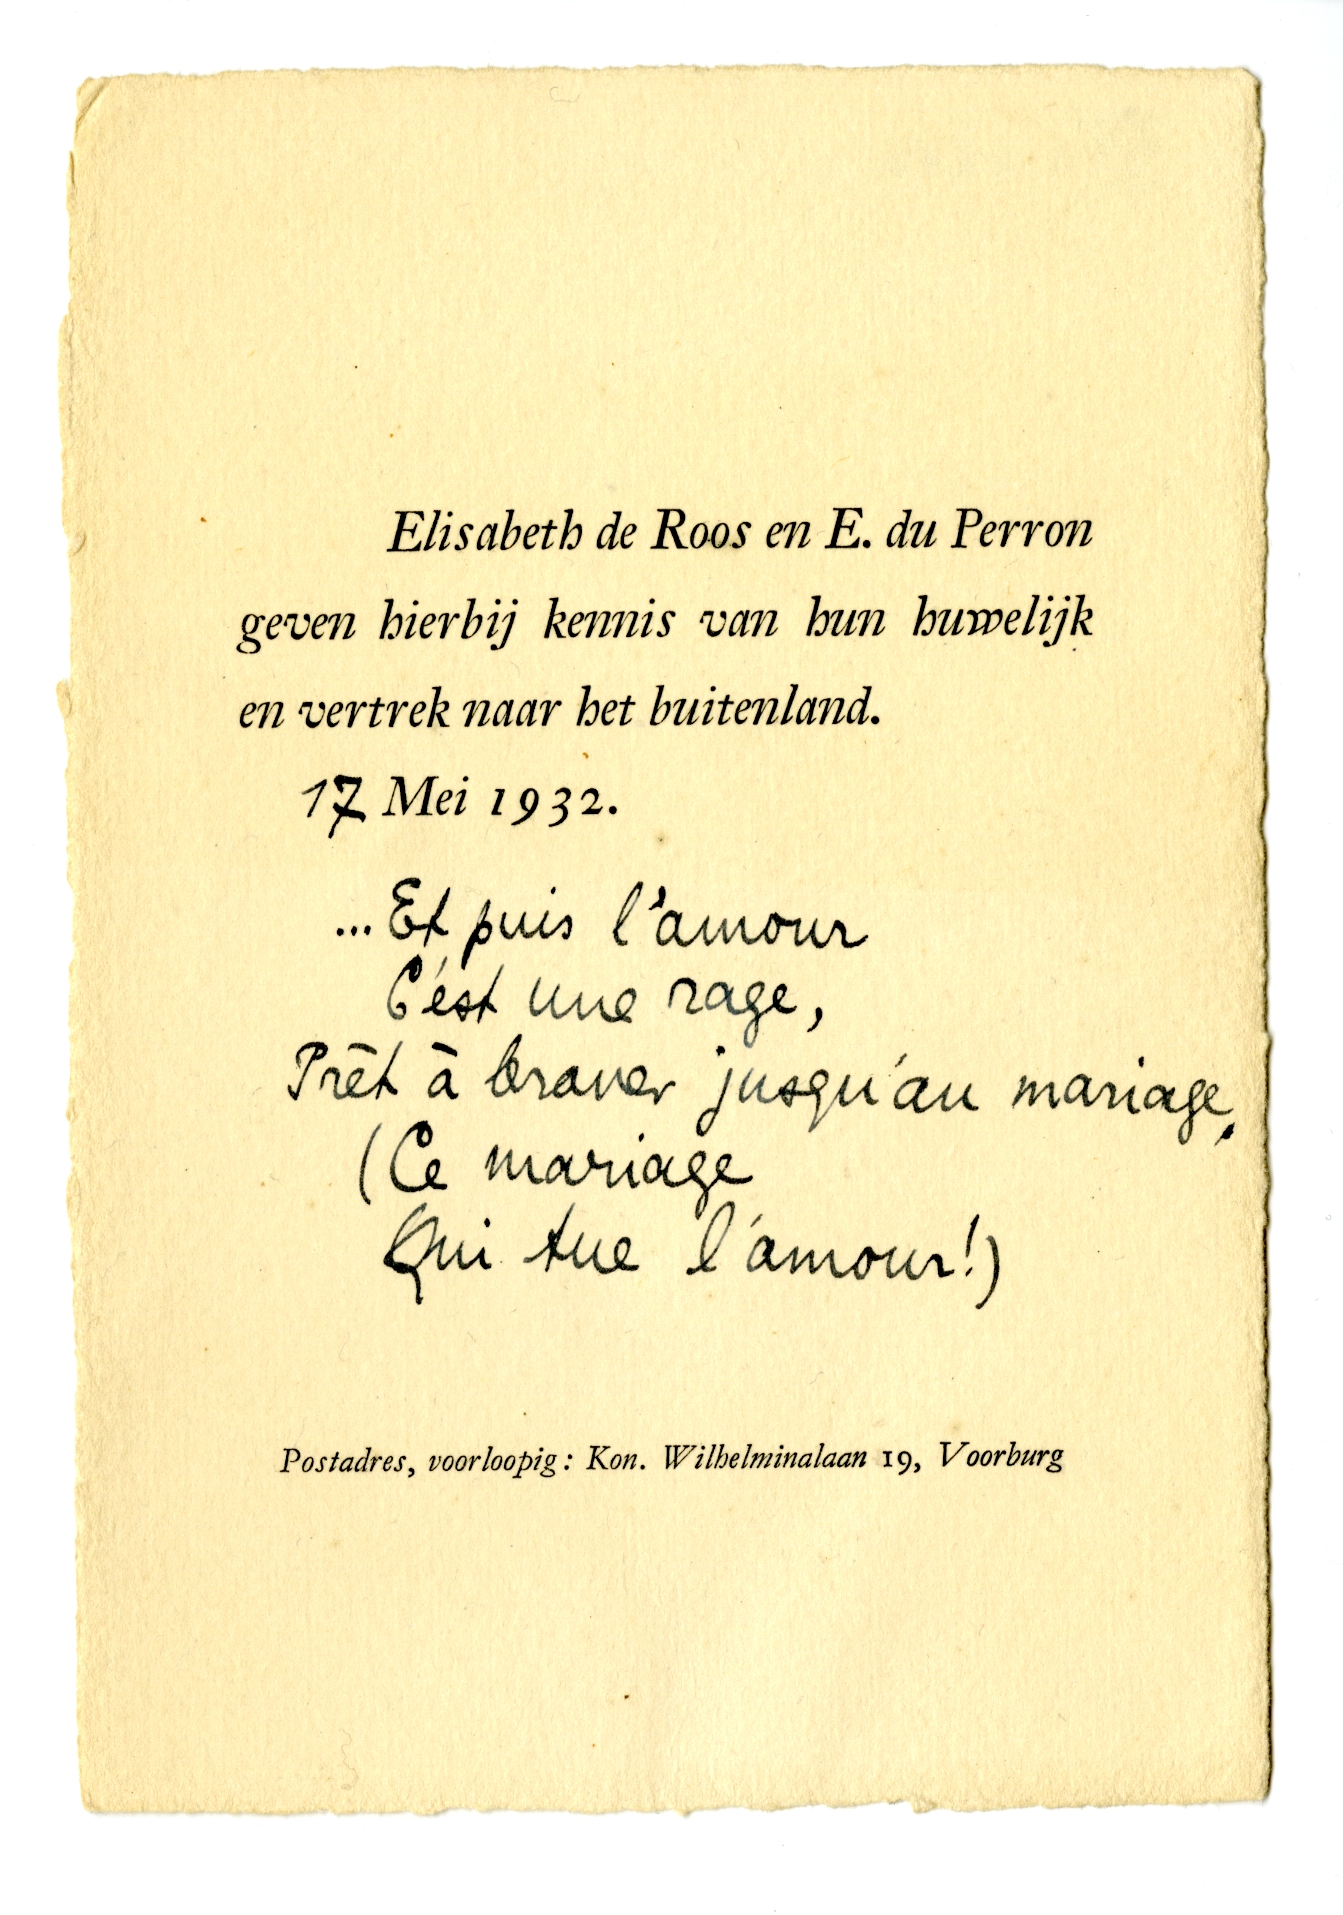 Elisabeth de Roos en E. du Perron
geven hierbij kennis van hun huwelijk
en vertrek naar het buitenland.
17 Mei 1932.
... Et puis l'amour
C'est une rage,
Prêt à braver jusqu'au mariage,
(Ce mariage
Qui tue l'amour!)
Postadres, voorloopig: Kon. Wilhelminalaan 19, Voorburg